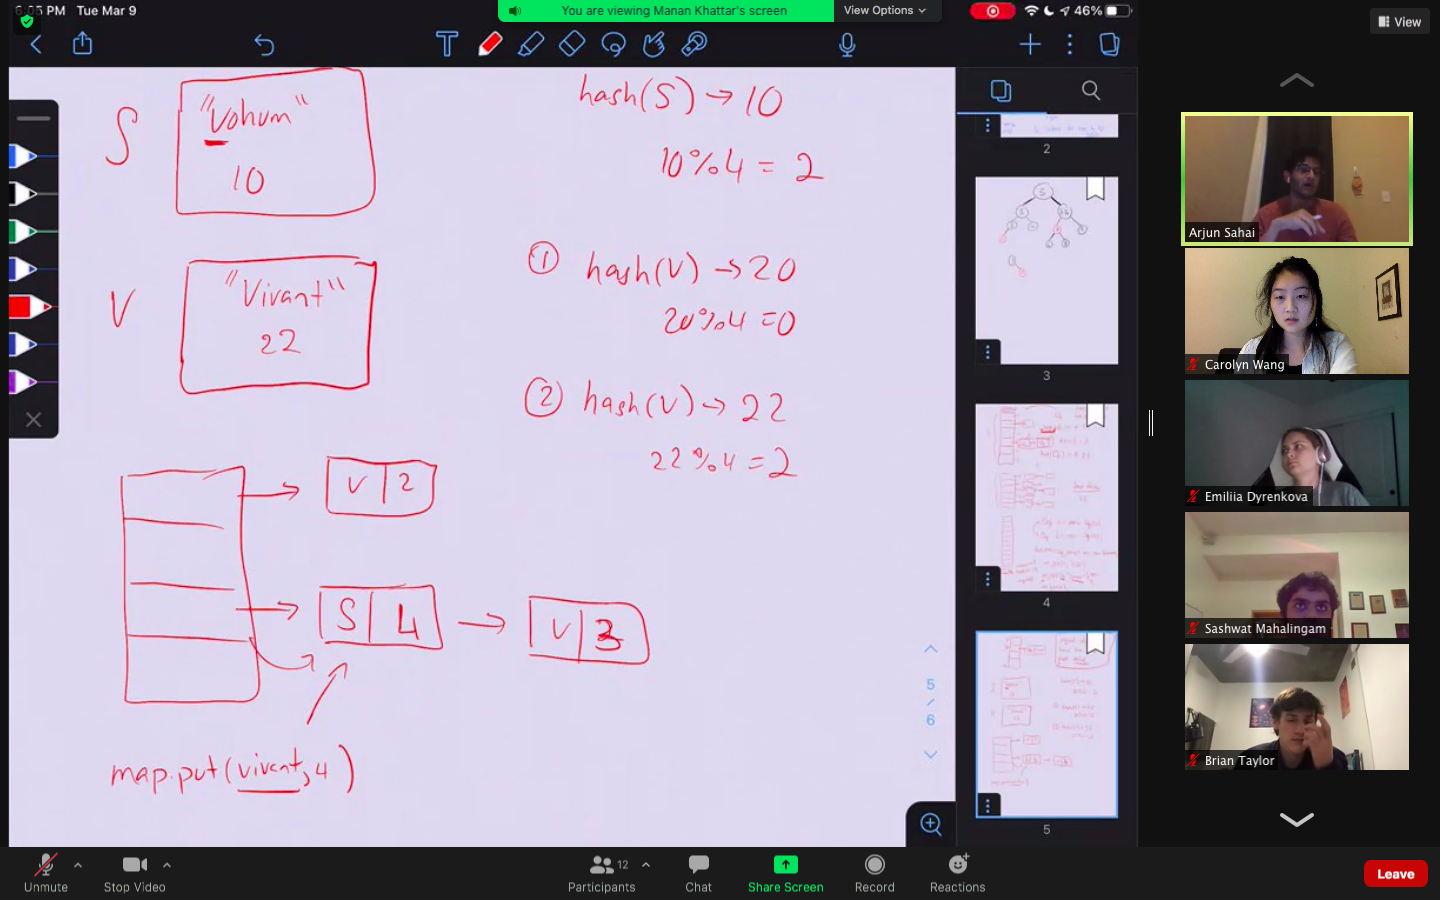 6:05 PM Tue Mar 9
You are viewing Manan Khattar's screen
View Options
46%
View
S
"Vohum"
10
hash(S) → 10
10%4 = 2
V
"Vivant"
22
① hash(V) → 20
20%4 = 0
② hash(V) → 22
22%4 = 2
V 2
S 4
V 3
map.put(vivant, 4)
5
/
6
2
3
4
5
Arjun Sahai
Carolyn Wang
Emiliia Dyrenkova
Sashwat Mahalingam
Brian Taylor
Unmute
Stop Video
Participants
12
Chat
Share Screen
Record
Reactions
Leave